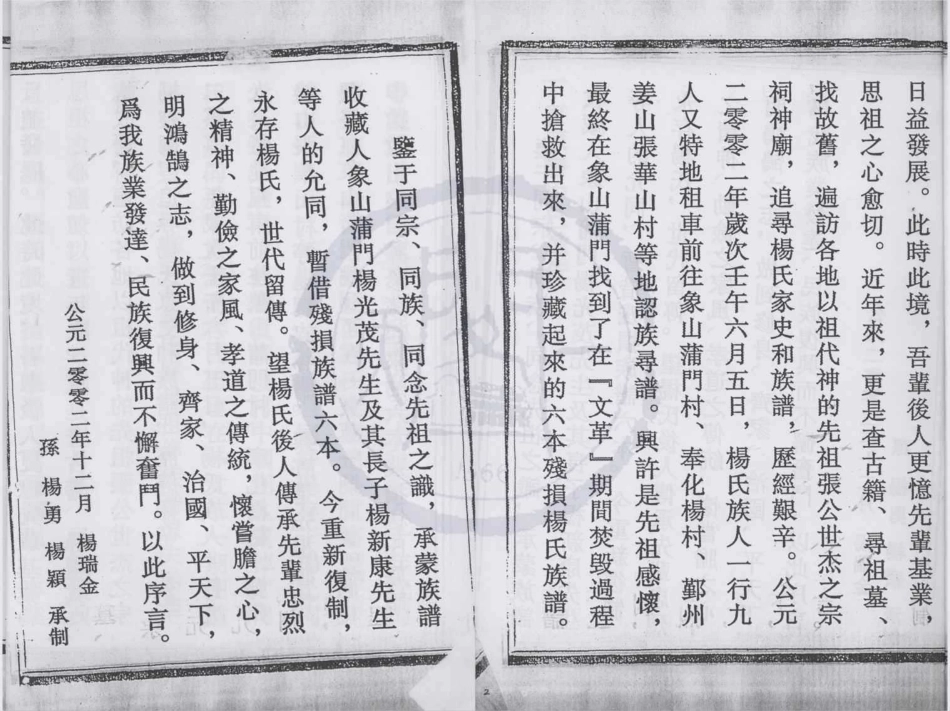 日益發展。此時此境，吾輩後人更憶先輩基業，
思祖之心愈切。近年來，更是查古籍、尋祖墓、
找故舊，遍訪各地以祖代神的先祖張公世杰之宗
祠神廟，追尋楊氏家史和族譜，歷經艱辛。公元
二零零二年歲次壬午六月五日，楊氏族人一行九
人又特地租車前往象山蒲門村、奉化楊村、鄞州
姜山張華山村等地認族尋譜。興許是先祖感懷，
最終在象山蒲門找到了在『文革』期間焚毀過程
中搶救出來，并珍藏起來的六本殘損楊氏族譜。
鑒于同宗、同族、同念先祖之識，承蒙族譜
收藏人象山蒲門楊光茂先生及其長子楊新康先生
等人的允同，暫借殘損族譜六本。今重新復制，
永存楊氏，世代留傳。望楊氏後人傳承先輩忠烈
之精神、勤儉之家風、孝道之傳統，懷嘗膽之心，
明鴻鵠之志，做到修身、齊家、治國、平天下，
爲我族業發達、民族復興而不懈奮鬥。以此序言。
公元二零零二年十二月 楊瑞金
孫 楊勇 楊穎 承制
2